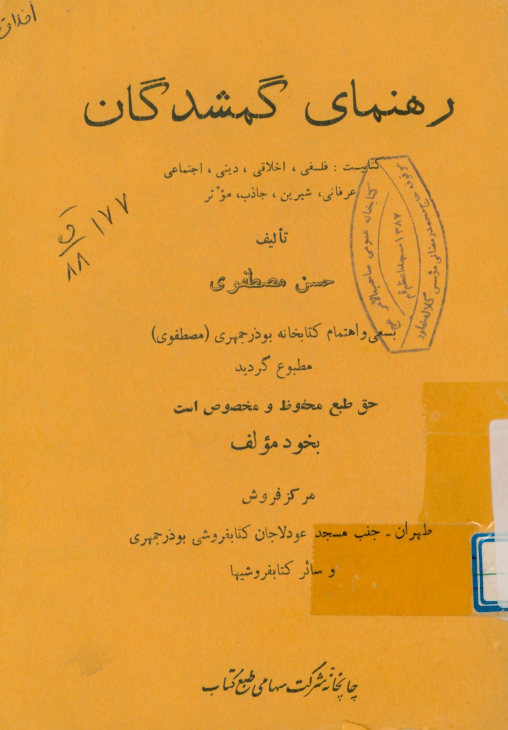 اخلاق
رهنمای گمشدگان
کتابیست : فلسفی ، اخلاقی ، دینی ، اجتماعی
عرفانی، شیرین ، جاذب، مؤثر
۱۷۷
ق
۸۸
تألیف
حسن مصطفوی
بسعی و اهتمام کتابخانه بوذرجمهری (مصطفوی)
مطبوع گردید
حق طبع محفوظ و مخصوص است
بخود مؤلف
مرکز فروش
طهران ـ جنب مسجد عودلاجان کتابفروشی بوذرجمهری
و سائر کتابفروشیها
چاپخانه شرکت سهامی طبع کتاب
کتابخانه عمومی صاحب الامر
۱۳۸۷ مسجد اعظم قم